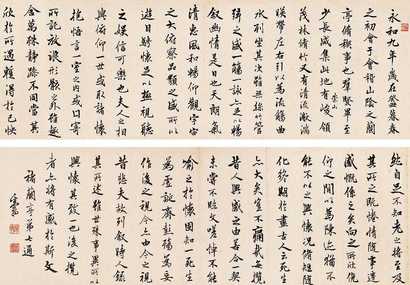 永和九年歲在癸丑暮春
之初會于會稽山陰之蘭
亭脩稧事也羣賢畢至
少長咸集此地有崇山峻領
茂林脩竹又有清流激湍
暎帶左右引以爲流觴曲
水列坐其次雖無絲竹管
弦之盛一觴一詠亦足以暢
敘幽情是日也天朗氣
清惠風和暢仰觀宇宙
之大俯察品類之盛所以
遊目騁懷足以極視聽
之娛信可樂也夫人之相
與俯仰一世或取諸懷
抱悟言一室之內或因寄
所託放浪形骸之外雖趣
舍萬殊靜躁不同當其
欣於所遇暫得於己快
然自足不知老之將至及
其所之既惓情隨事遷
感慨係之矣向之所欣俛
仰之間以爲陳迹猶不
能不以之興懷況脩短隨
化終期於盡古人云死生
亦大矣豈不痛哉每攬
昔人興感之由若合一契
未嘗不臨文嗟悼不能
喻之於懷固知一死生
爲虛誕齊彭殤爲妄
作後之視今亦由今之視
昔悲夫故列敘時人錄
其所述雖世殊事異所以
興懷其致一也後之攬
者亦將有感於斯文
褚蘭亭第七通